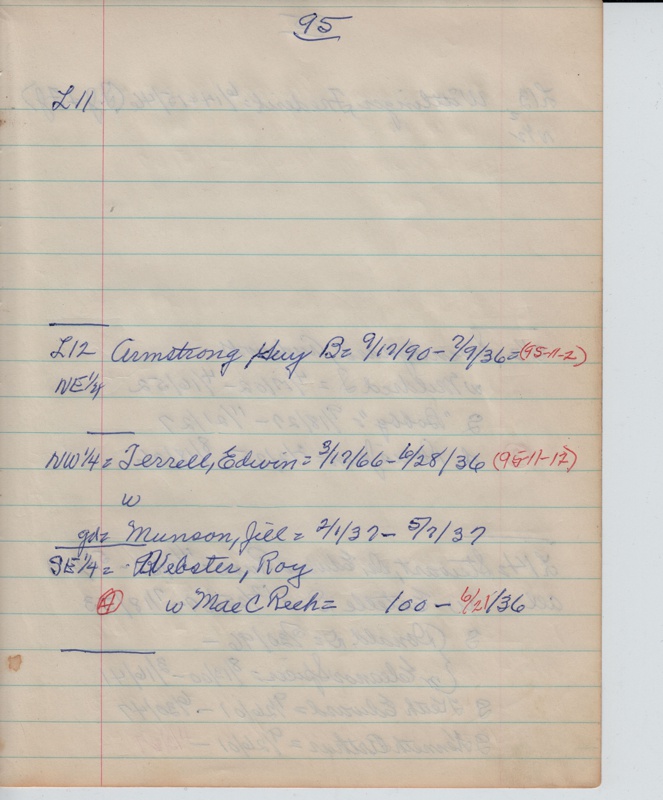 95
L11
L12 Armstrong Huy B= 9/17/90-7/9/36=(95-11-2)
NE 1/4
NW 1/4= Terrell, Edwin= 3/17/66-6/28/36 (95-11-12)
w
gd= Munson, Jill= 2/1/37- 5/7/37
SE 1/4= Webster, Roy
A w Mae C Reeh= 1/00- 6/21/36